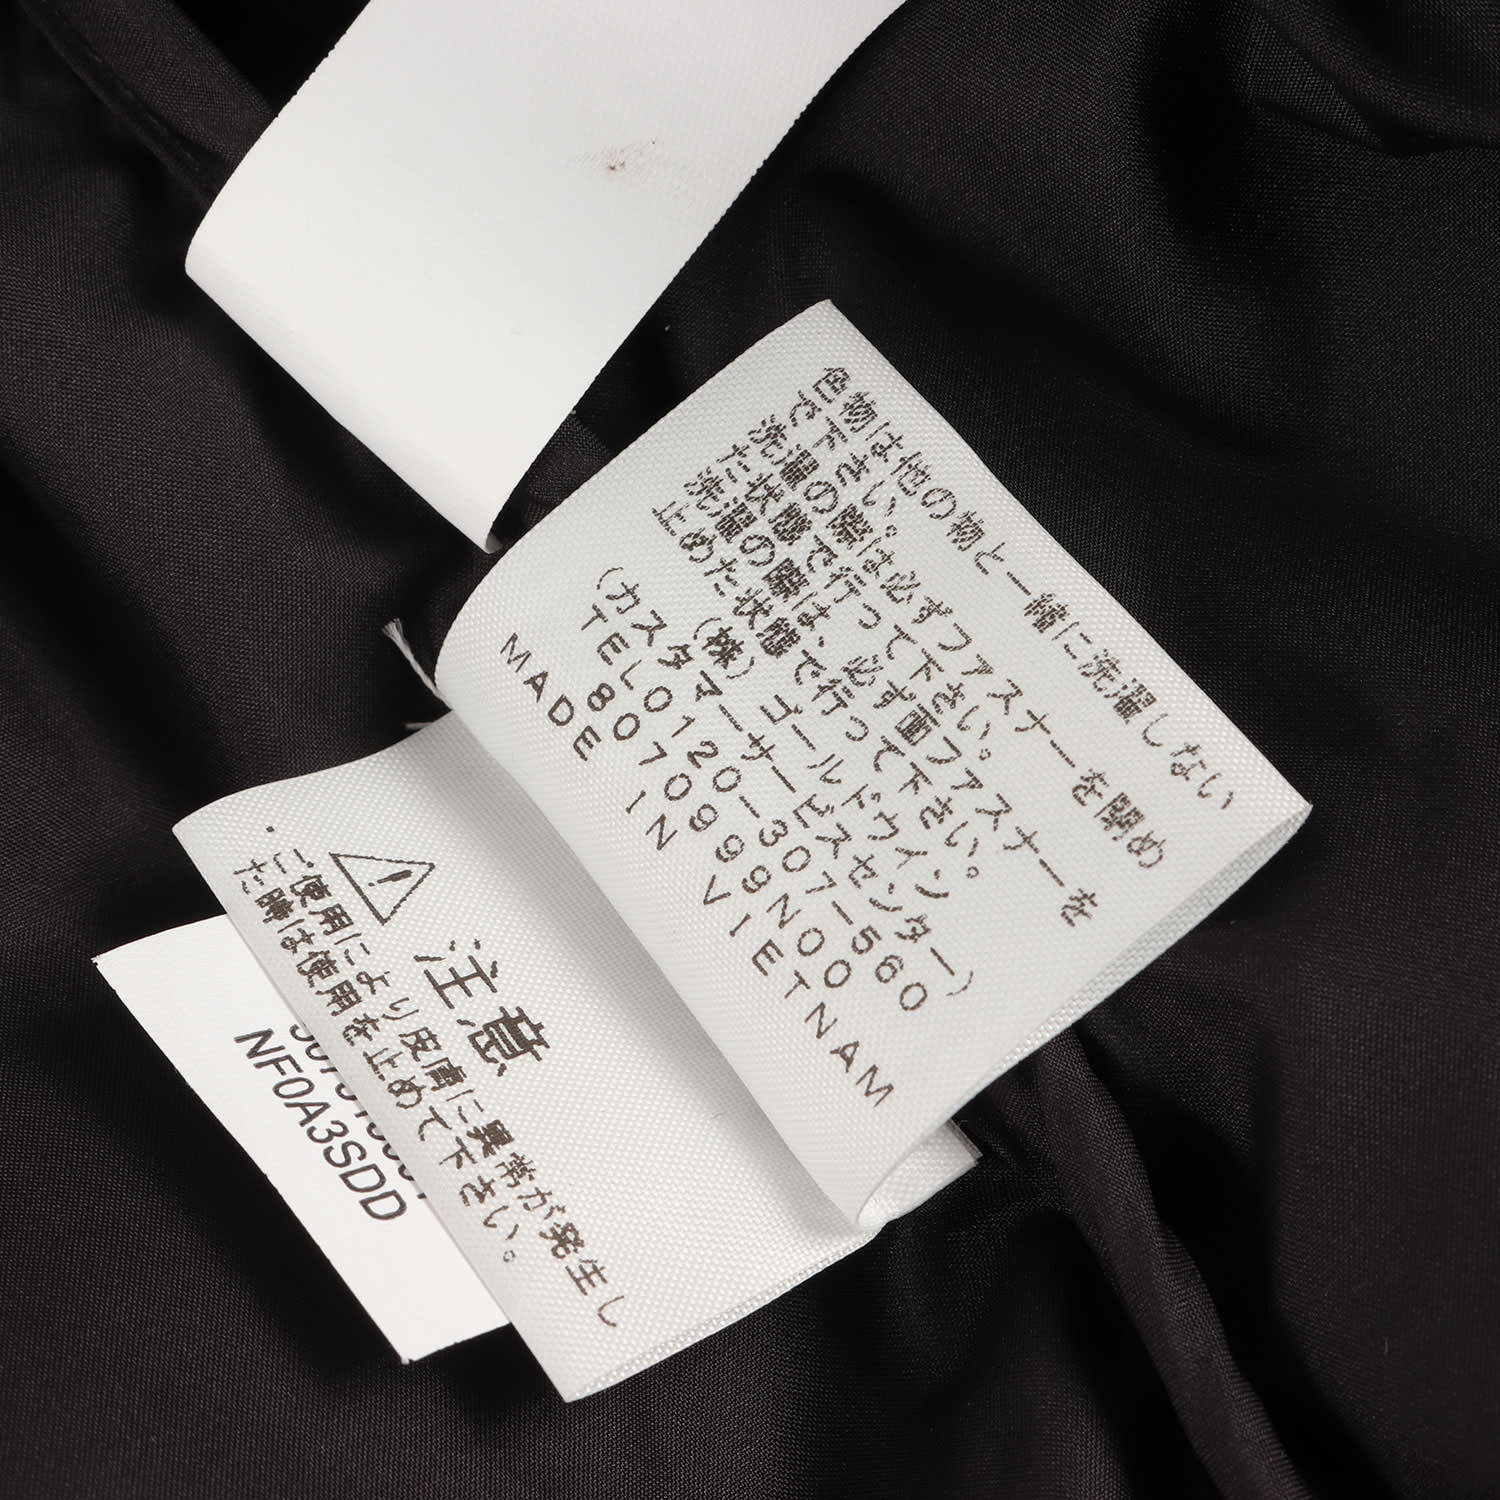 色物は他の物と一緒に洗濯しない
で下さい。
洗濯の際は必ずファスナーを閉め
た状態で行って下さい。
洗濯の際は、必ず面ファスナーを
止めた状態で行って下さい。
(株)ゴールドウイン
(カスタマーサービスセンター)
TEL0120-307-560
8070999N00
MADE IN VIETNAM
注意
・ご使用により皮膚に異常が発生し
た時は使用を止めて下さい。
NF0A3SDD